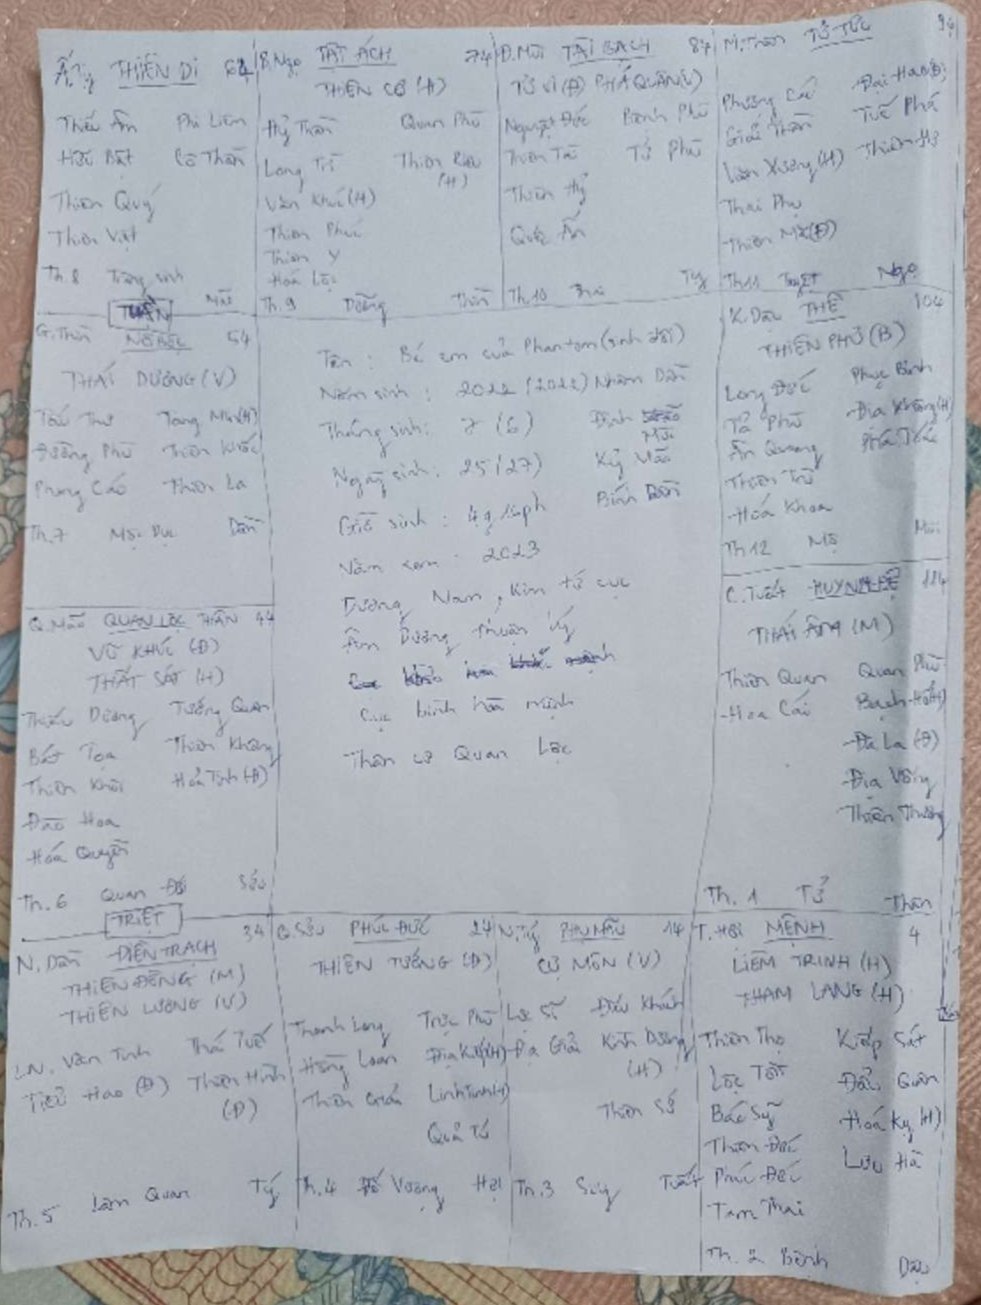 Ấ.Tỵ THIÊN DI 64
Thiếu Âm Phi Liêm
Hữu Bật Cô Thần
Thiên Quý
Thiên Việt
Th.8 Tràng sinh Mão
B.Ngọ TẬT ÁCH 74
THIÊN CƠ (H)
Hỷ Thần Quan Phủ
Long Trì Thiên Riêu (H)
Văn Khúc (H)
Thiên Phúc
Thiên Y
Hoá Lộc
Th.9 Dưỡng Thìn
Đ.Mùi TÀI BẠCH 84
TỬ VI (Đ) PHÁ QUÂN (V)
Nguyệt Đức Bệnh Phù
Thiên Tài Tử Phù
Thiên Hỷ
Quốc Ấn
Th.10 Thai Tỵ
M.Thân TỬ TỨC 94
Phượng Các Đại Hao (Đ)
Giải Thần Tuế Phá
Văn Xương (H) Thiên Hư
Thai Phụ
Thiên Mã (Đ)
Th.11 Tuyệt Ngọ
TUẦN
G.Thìn NÔ BỘC 54
THÁI DƯƠNG (V)
Tấu Thư Tang Môn (H)
Đường Phù Thiên Khốc
Phong Cáo Thiên La
Th.7 Mộc Dục Dần
Tên : Bé em của Phantom (sinh đôi)
Năm sinh : 2022 (2022) Nhâm Dần
Tháng sinh : 7 (6) Đinh Mùi
Ngày sinh : 25 (27) Kỷ Mão
Giờ sinh : 4g 16ph Bính Dần
Năm xem : 2023
Dương Nam, Kim tứ cục
Âm Dương thuận lý
Cục bình hòa mệnh
Thân cư Quan Lộc
K.Dậu THÊ 104
THIÊN PHỦ (B)
Long Đức Phục Binh
Tả Phù Địa Không (H)
Ân Quang Phá Toái
Thiên Trù
Hoá Khoa
Th 12 Mộ Mùi
C.Tuất HUYNH ĐỆ 114
THÁI ÂM (M)
Thiên Quan Quan Phủ
Hoa Cái Bạch Hổ (H)
Đà La (Đ)
Địa Võng
Thiên Thương
Th.1 Tử Thân
Q.Mão QUAN LỘC THÂN 44
VŨ KHÚC (Đ)
THẤT SÁT (H)
Thiếu Dương Tướng Quân
Bát Tọa Thiên Không
Thiên Khôi Hoả Tinh (Đ)
Đào Hoa
Hoá Quyền
Th.6 Quan Đới Sửu
TRIỆT
N.Dần ĐIỀN TRẠCH 34
THIÊN ĐỒNG (M)
THIÊN LƯƠNG (V)
LN. Văn Tinh Thái Tuế
Tiểu Hao (Đ) Thiên Hình (Đ)
Th.5 Lâm Quan Tý
Q.Sửu PHÚC ĐỨC 24
THIÊN TƯỚNG (Đ)
Thanh Long Trực Phù
Hồng Loan Địa Kiếp (H)
Thiên Giải Linh Tinh (H)
Quả Tú
Th.4 Đế Vượng Hợi
N.Tý PHỤ MẪU 14
CỰ MÔN (V)
Lực Sĩ Điếu Khách
Địa Giải Kình Dương (H)
Thiên Sứ
Th.3 Suy Tuất
T.Hợi MỆNH 4
LIÊM TRINH (H)
THAM LANG (H)
Thiên Thọ Kiếp Sát
Lộc Tồn Đẩu Quân
Bác Sỹ Hoá Kỵ (H)
Thiên Đức Lưu Hà
Phúc Đức
Tam Thai
Th. 2 Bệnh Dậu